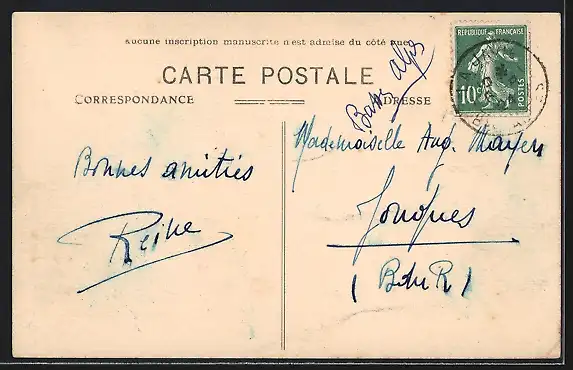 aucune inscription manuscrite n'est admise du côté aue
CARTE POSTALE
CORRESPONDANCE
ADRESSE
Basses Alpes
RÉPUBLIQUE FRANÇAISE
10c
POSTES
Bonnes amitiés
Reine
Mademoiselle Aug. Mayen
Jouques
(B du R)